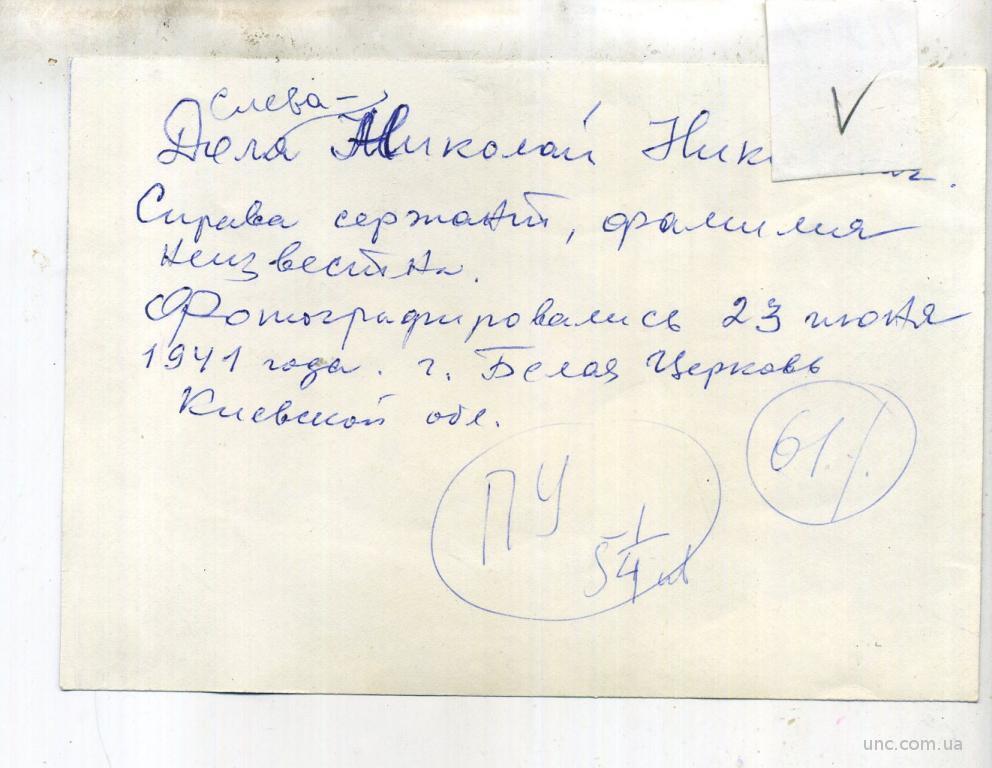 Слева →
Дела Николай
Справа сержант, фамилия
неизвестна.
Фотографировались 23 июня
1941 года. г. Белая Церковь
Киевской обл.
61.
ПУ
5 1/4
unc.com.ua